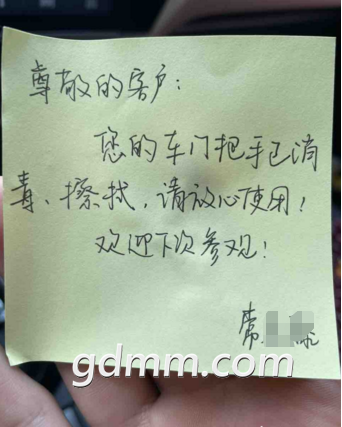 尊敬的客户：
您的车门把手已消
毒、擦拭，请放心使用！
欢迎下次参观！
常
gdmm.com